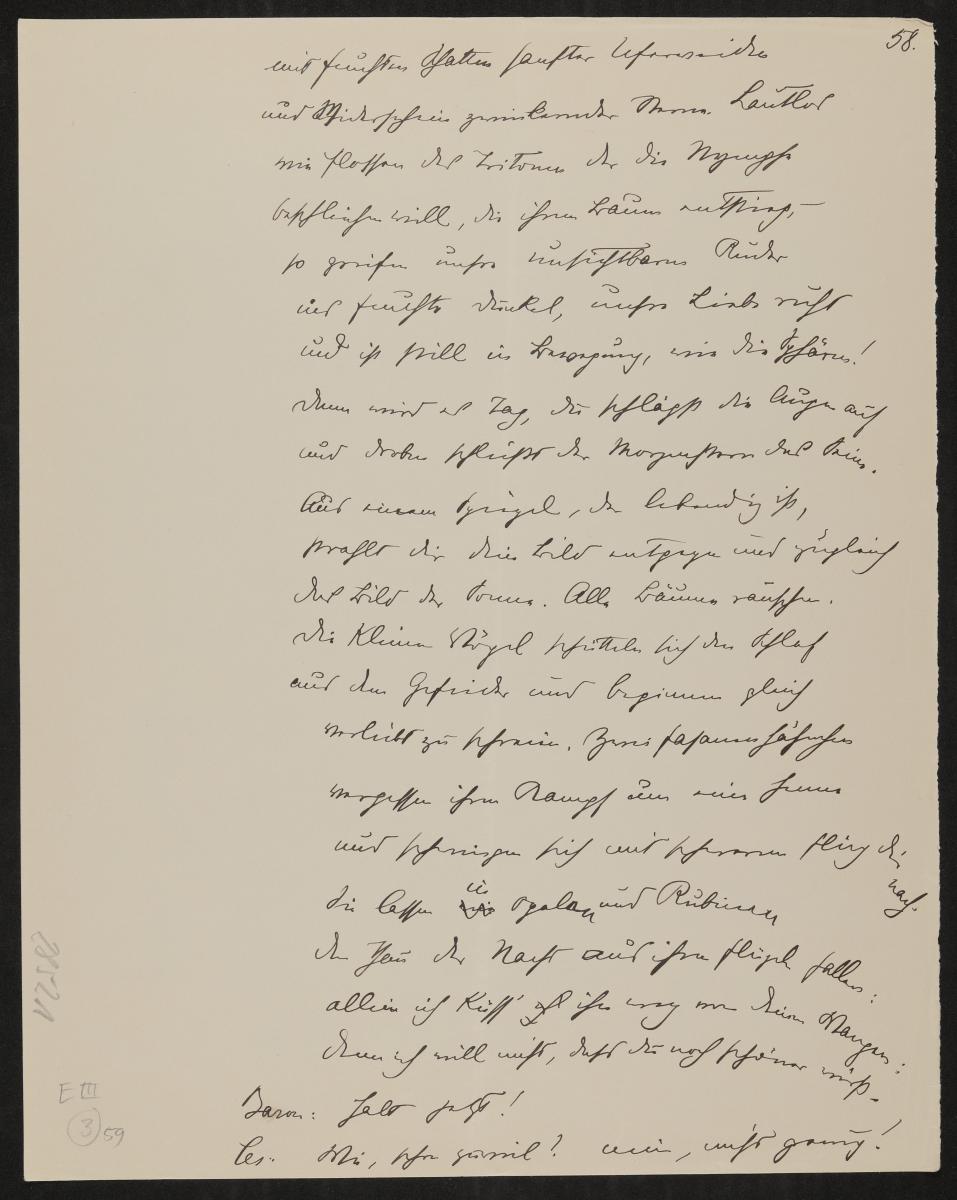 58.
mit feuchten Schatten sanfter Uferweiden
und Widerschein zwinkernder Sterne. Lautlos
wie Flossen des Tritonen der die Nymphe
beschleichen will, die ihrem Baum entstieg, –
so greifen unsre unsichtbaren Ruder
ins feuchte Dunkel, unsre Liebe ruht
und ist still in Bewegung, wie die Sphären!
Dann wird es Tag, du schlägst die Augen auf
und droben schließt der Morgenstern das Seine.
Aus einem Spiegel, der lebendig ist,
strahlt dir dein Bild entgegen und zugleich
das Bild der Sonne. Alle Bäume rauschen.
Die kleinen Vögel schütteln sich den Schlaf
aus dem Gefieder und beginnen gleich
verliebt zu schreien. Zwei Fasanenhähnchen
vergessen ihren Kampf um eine Henne
und schwingen sich mit schwerem Flug dir
nach.
in
Sie lassen Opalen und Rubinen
den Thau der Nacht aus ihren Flügeln fallen:
allein ich küss' ihn weg von deinen Wangen:
denn ich will nicht, dass du noch schöner wirst.
Baron: Halt jetzt!
Ces: Wie, schon zuviel? nein, nicht genug!
E III
3 59